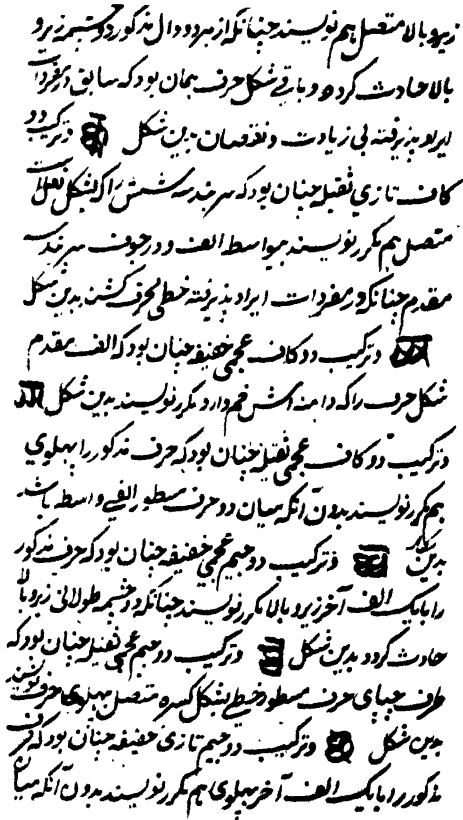 زیر و بالا متصل هم نویسند چنانکه از هر دو دال مذکور دو چشمه زیر و
بالا حادث کردد و باقی شکل حرف همان بود که سابق در مفردات
ایراد پذیرفته بی زیادت و نقصان بدین شکل و ترکیب دو
کاف تازی ثقیله چنان بود که هر هندسه شش را که بشکل نعل است
متصل هم مکرر نویسند بیواسط الف و در جوف هر هندسه
مقدم چنانکه در مفردات ایراد پذیرفته خطی محرف کشند بدین شکل
و ترکیب دو کاف عجمی خفیفه چنان بود که الف مقدم
شکل حرف را که دامنه اش خم دارد مکرر نویسند بدین شکل
و ترکیب دو کاف عجمی ثقیله چنان بود که حرف مذکور را پهلوی
هم مکرر نویسند بدون آنکه میان دو حرف مسطور الفی واسط باشد
بدین شکل و ترکیب دو جیم عجمی خفیفه چنان بود که حرف مذکور
را با یک الف آخر زیر و بالا مکرر نویسند چنانکه دو چشمه طولانی زیر و بالا
حادث کردد بدین شکل و ترکیب دو جیم عجمی ثقیله چنان بود که
طرف چپای حرف مسطور خطی بشکل کسره متصل پهلوی حرف نویسند
بدین شکل و ترکیب دو جیم تازی خفیفه چنان بود که حرف
مذکور را با یک الف آخر پهلوی هم مکرر نویسند بدون آنکه میان